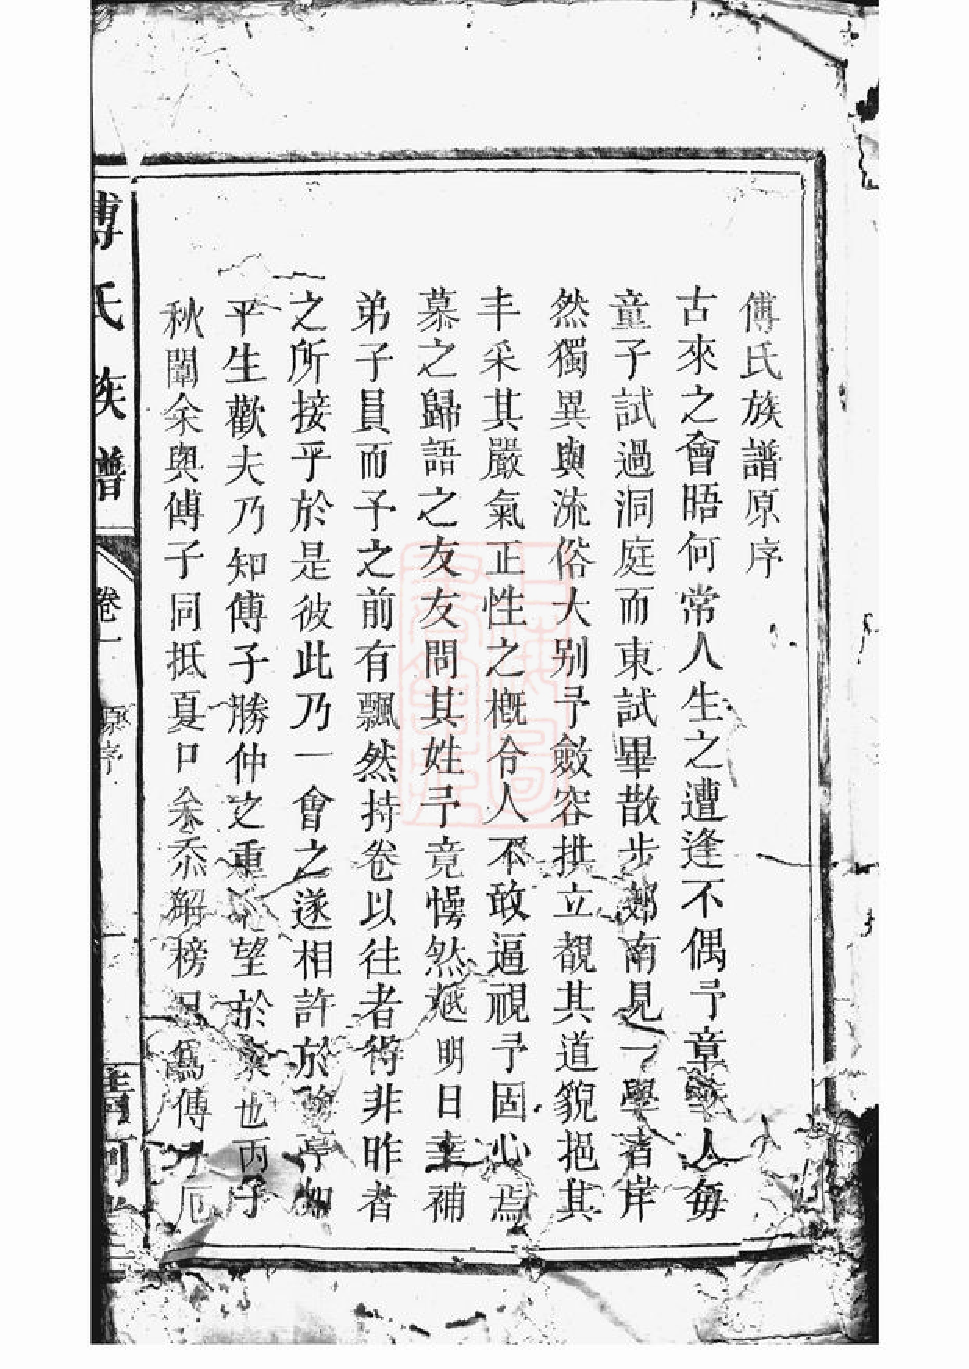 傅氏族譜原序
古來之會晤何常人生之遭逢不偶予章人每
童子試過洞庭而東試畢散步郊南見一學者岸
然獨異與流俗大别予斂容拱立覩其道貌挹其
丰采其嚴氣正性之概令人不敢逼視予固心焉
慕之歸語之友友問其姓予竟懵然越明日幸補
弟子員而予之前有飄然持卷以往者得非昨者
之所接乎於是彼此乃一會之遂相許於
平生歡夫乃知傅子勝仲之重望於也丙子
秋闈余與傅子同抵夏口余忝榜爲傅子厄
傅氏族譜
卷一
原序
一
清河堂